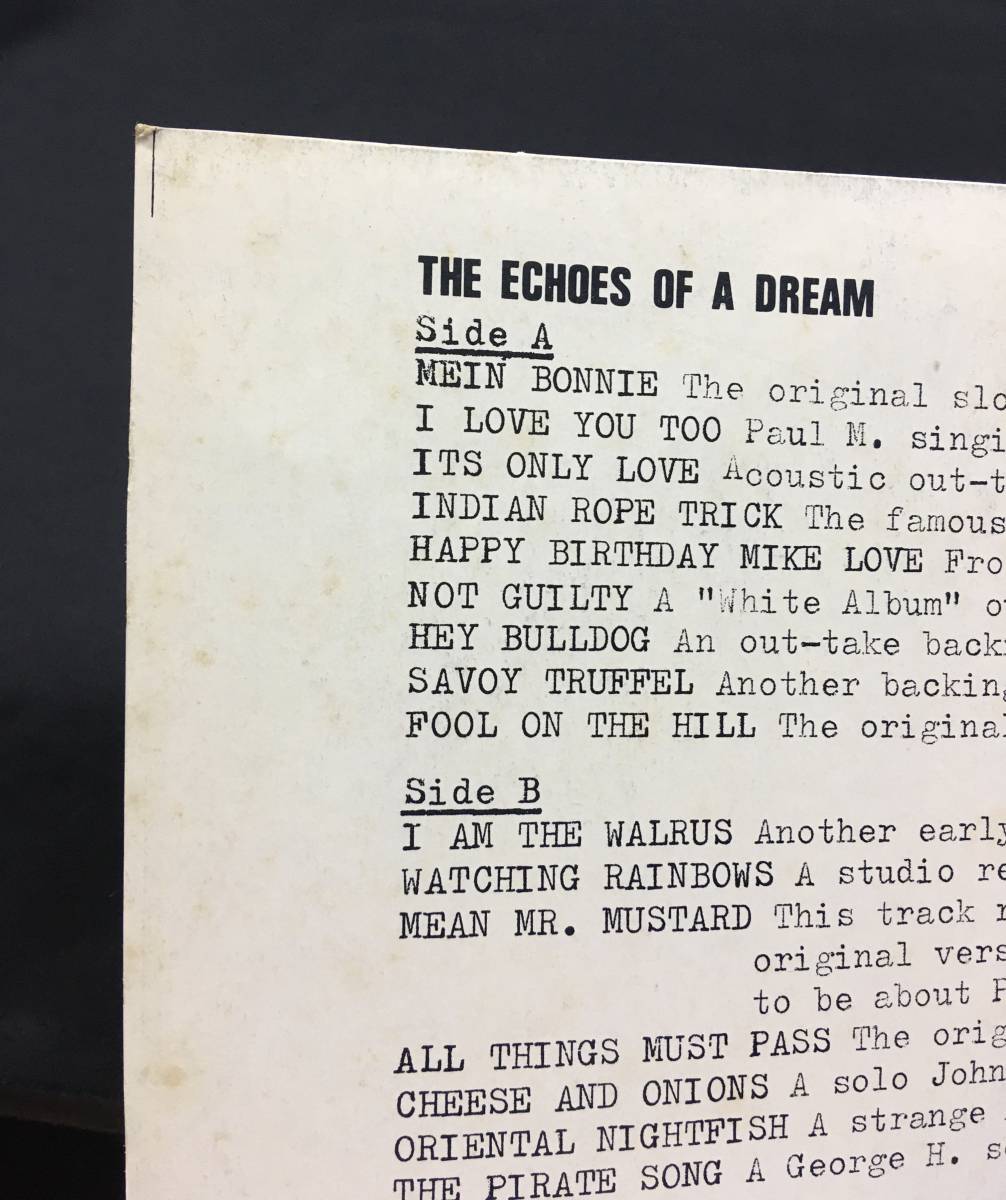 THE ECHOES OF A DREAM
Side A
MEIN BONNIE The original slo
I LOVE YOU TOO Paul M. singi
ITS ONLY LOVE Acoustic out-t
INDIAN ROPE TRICK The famous
HAPPY BIRTHDAY MIKE LOVE Fro
NOT GUILTY A "White Album" o
HEY BULLDOG An out-take back
SAVOY TRUFFEL Another backing
FOOL ON THE HILL The original
Side B
I AM THE WALRUS Another early
WATCHING RAINBOWS A studio re
MEAN MR. MUSTARD This track
original vers
to be about
ALL THINGS MUST PASS The orig
CHEESE AND ONIONS A solo John
ORIENTAL NIGHTFISH A strange
THE PIRATE SONG A George H. s